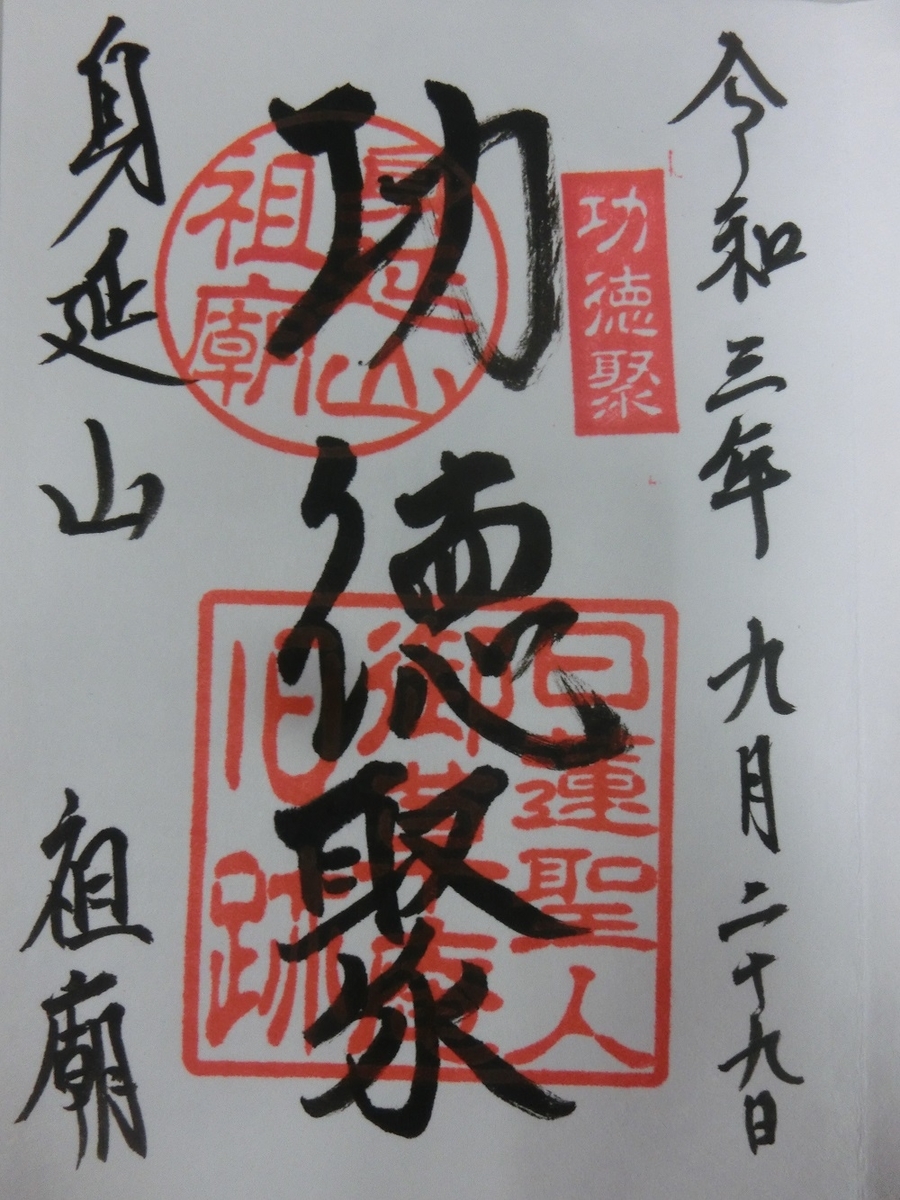 令和三年 九月二十九日
功徳聚
功徳聚
身延山
祖廟
日蓮聖人
御草庵
旧跡
身延山 祖廟